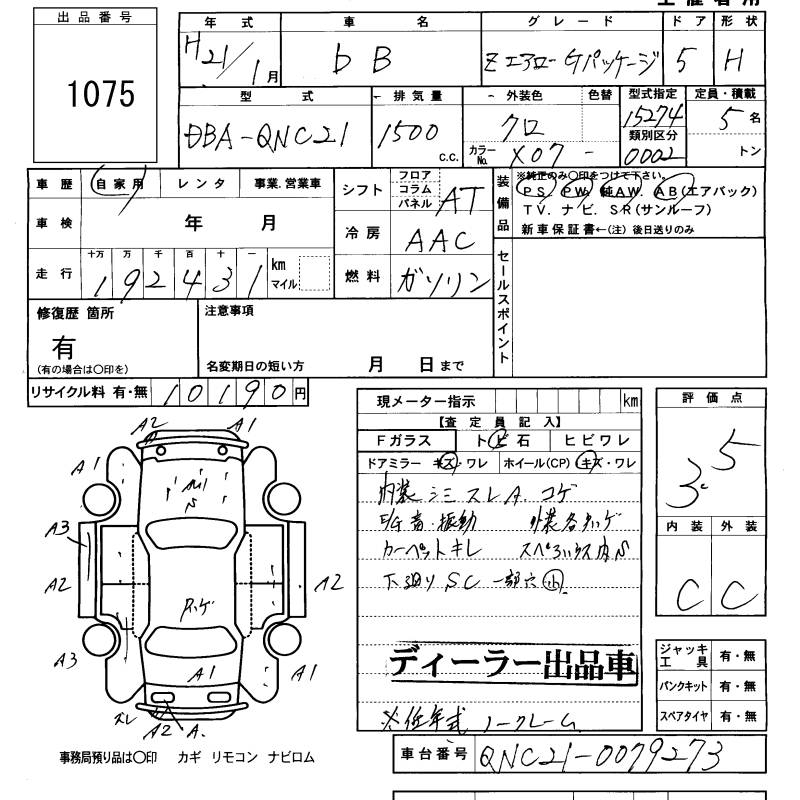 出品番号
1075
年式 車名 グレード ドア 形状
H21/1月 bB Zエアロ-Gパッケージ 5 H
型式 排気量 外装色 色替 型式指定 定員・積載
DBA-QNC21 1500 c.c. クロ 15274 5名
カラーNo. X07 - 類別区分 0002 トン
車歴 自家用 レンタ 事業.営業車
車検 年 月
走行 十万 万 千 百 十 一
192431 km マイル
シフト フロア コラム パネル AT
冷房 AAC
燃料 ガソリン
装備品 ※純正のみ○印をつけて下さい。
PS. PW. 純AW. AB(エアバック)
TV. ナビ. SR(サンルーフ)
新車保証書←(注) 後日送りのみ
セールスポイント
修復歴 箇所
有
(有の場合は○印を)
注意事項
名変期日の短い方 月 日まで
リサイクル料 有・無 10190円
現メーター指示 km
【査定員記入】
Fガラス トビ石 ヒビワレ
ドアミラー キズ・ワレ ホイール(CP) キズ・ワレ
内装 シミ スレ A. コゲ
E/G音・振動
カーペットキレ
下廻りSC 一部穴小
ディーラー出品車
※低年式 ノークレーム
評価点
3.5
内装 外装
C C
ジャッキ工具 有・無
パンクキット 有・無
スペアタイヤ 有・無
A2 A1
A1 A1
A3
A2 A2
A3 A1
A1
スレ A2 A.
事務局預り品は○印 カギ リモコン ナビロム
車台番号 QNC21-0079273